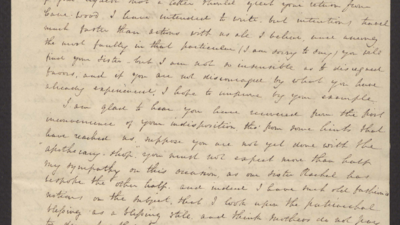 a letter should greet your return from
Cane Wood, I have intended to write, but intentions travel
much faster than actions, with us all I believe, and among
the most faulty in that particular (I am sorry to say) you will
find your Sister, but I am not so insensible as to disregard
favors, and if you are not discouraged by what you have
already experienced, I hope to improve by your example.
I am glad to hear you have recovered from the
inconvenience of your indisposition tho' from some hints that
have reached us suppose you are not yet done with the
apothecary shop, you must not expect more than half
my sympathy on this occasion, as our Sister Rachel has
bespoke the other half, and indeed I have such old fashion
notions on the subject, that I look upon the
blessing as a blessing still and think mothers do not pay